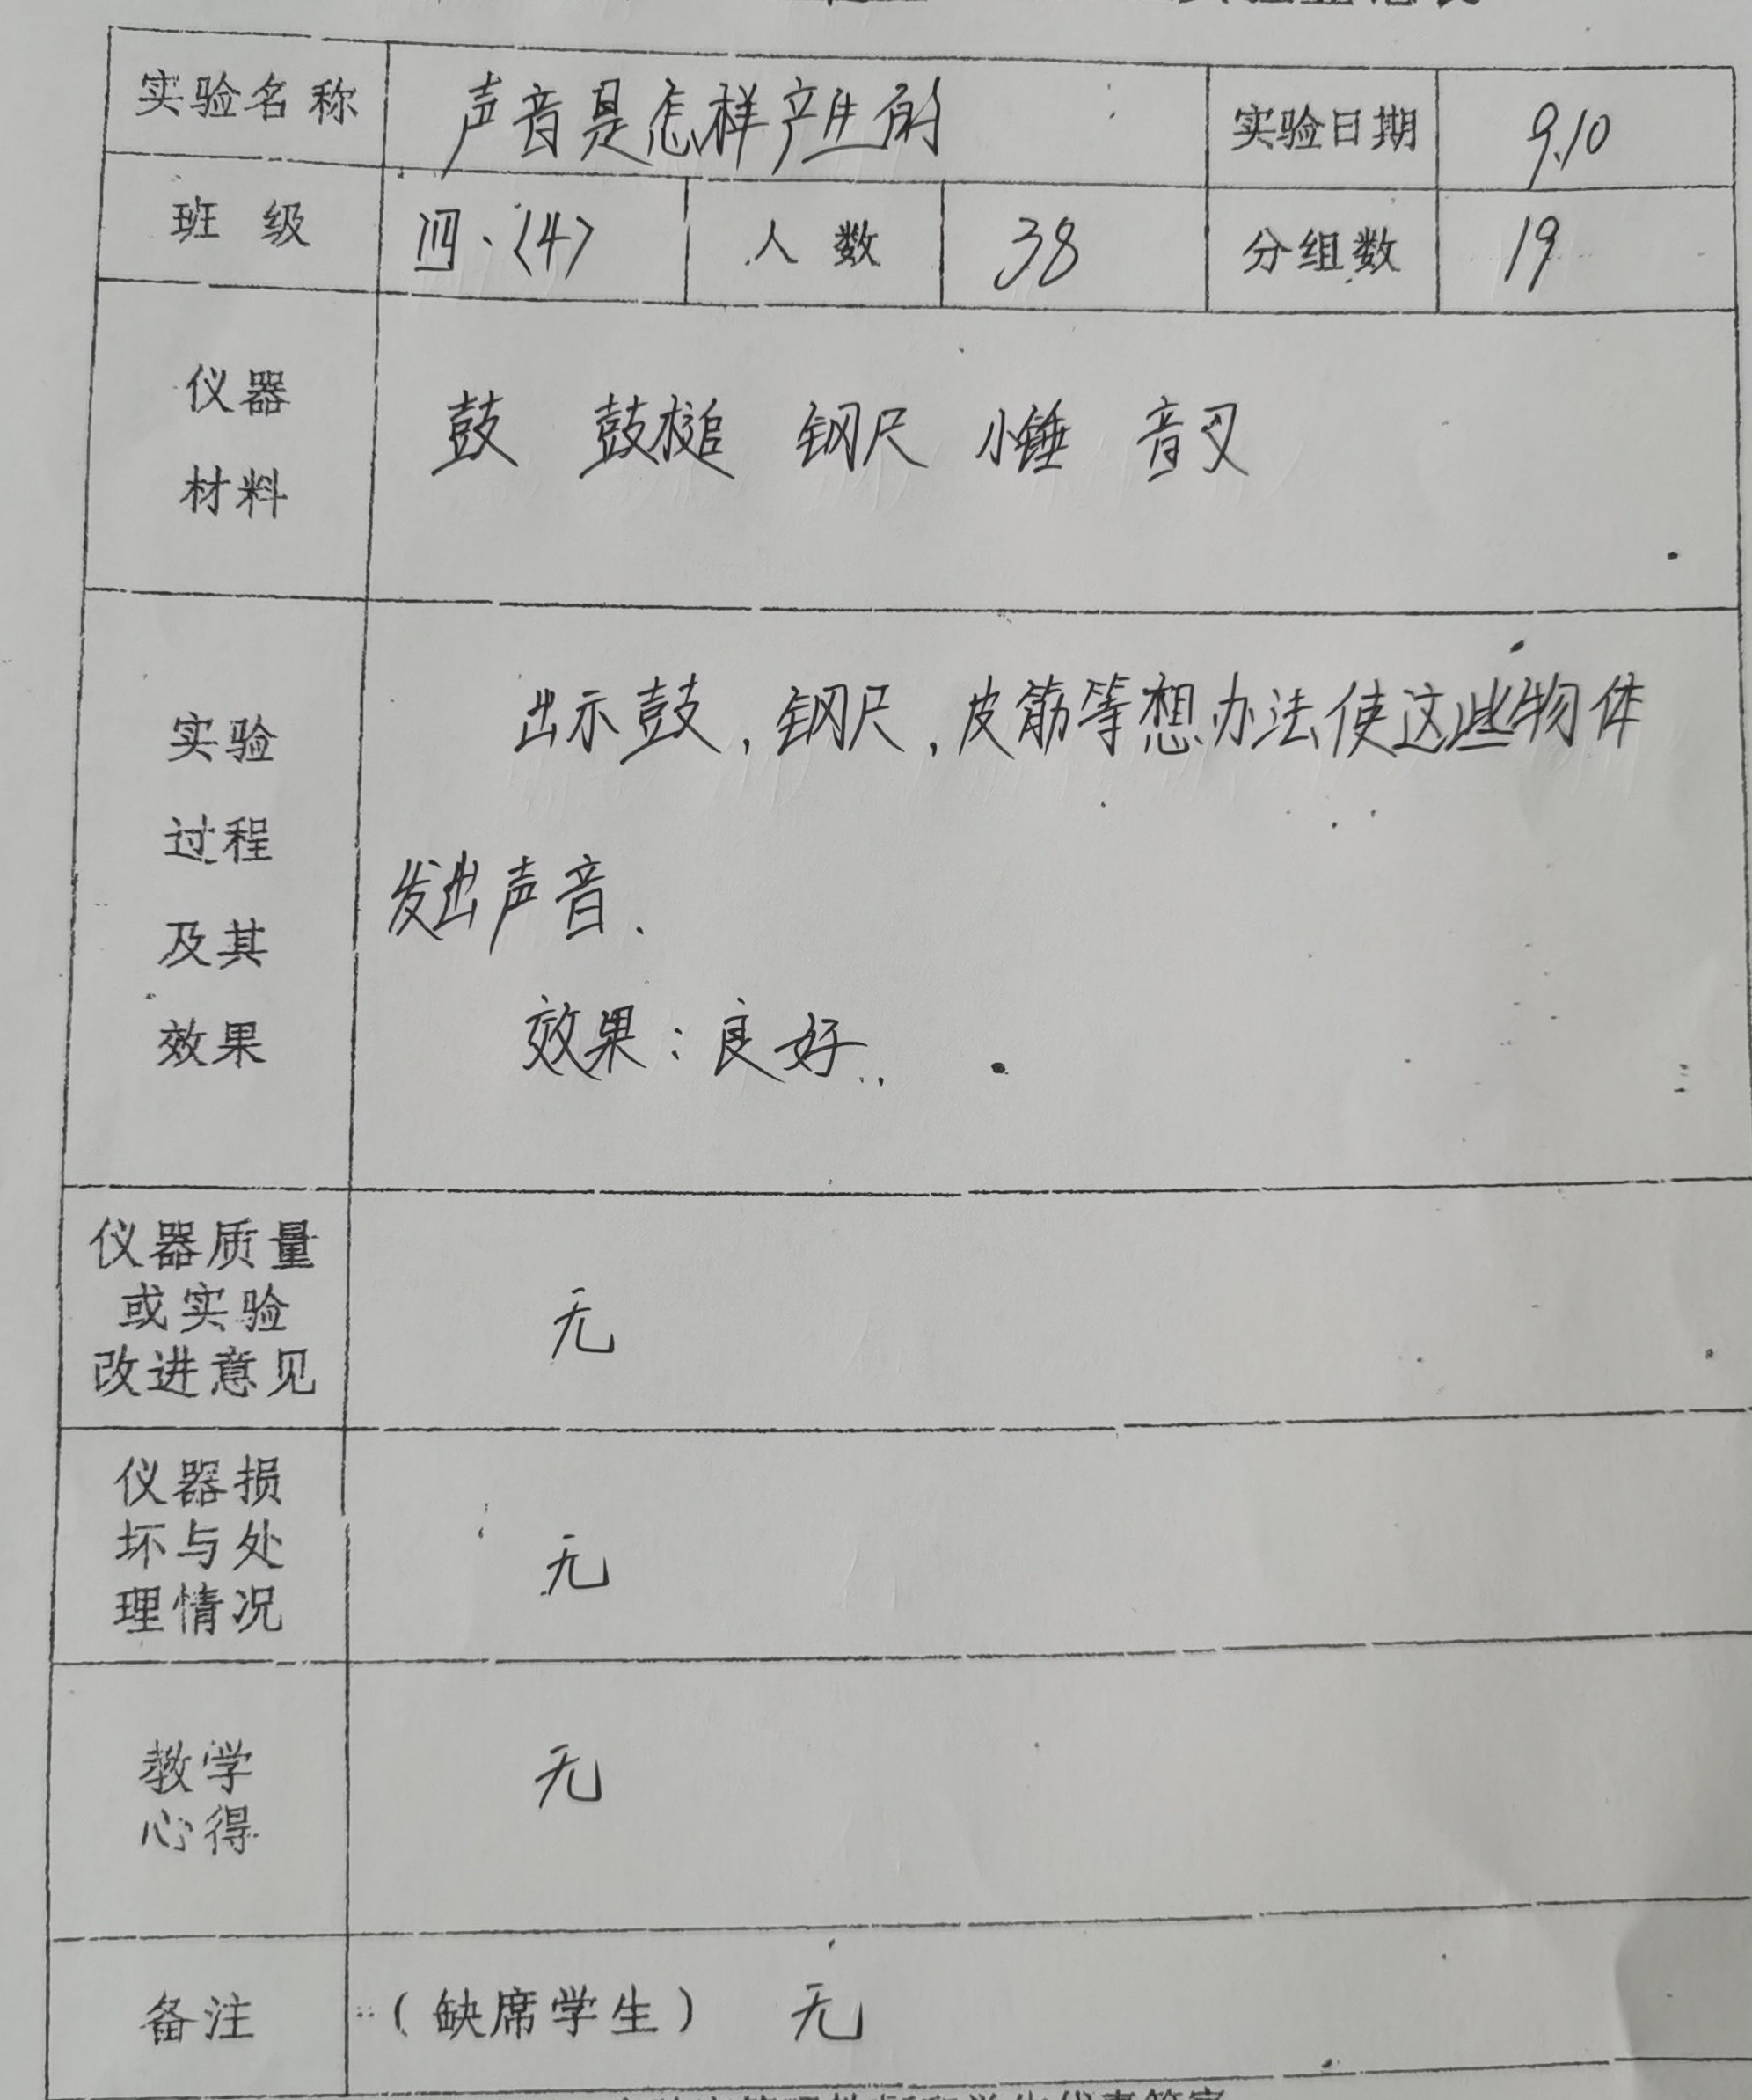 实验名称 声音是怎样产生的 实验日期 9.10
班级 四、(4) 人数 38 分组数 19
仪器
材料
鼓 鼓槌 钢尺 小锤 音叉
实验
过程
及其
效果
出示鼓,钢尺,皮筋等想办法使这些物体
发出声音.
效果:良好.
仪器质量
或实验
改进意见
无
仪器损
坏与处
理情况
无
教学
心得
无
备注 (缺席学生) 无